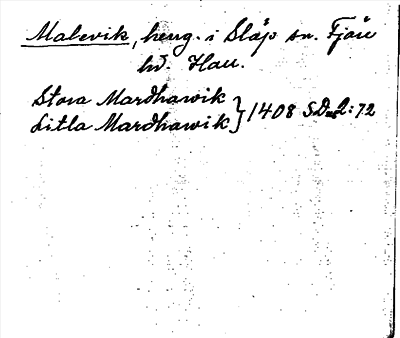 Malevik, heng. i Släp sn. Fjäre
hd. Hall.
Stora Mardhawik
Litla Mardhawik } 1408 SD 2:72